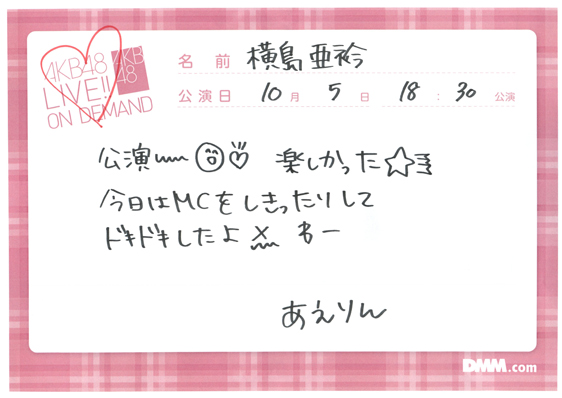 AKB48
LIVE!!
ON DEMAND
AKB
48
名前 横島亜衿
公演日 10月 5日 18:30 公演
公演〰 楽しかった☆彡
今日はMCをしきったりして
ドキドキしたよ × わー
あえりん
DMM.com